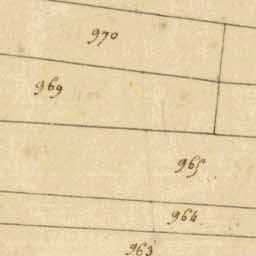 970
969
965
964
963